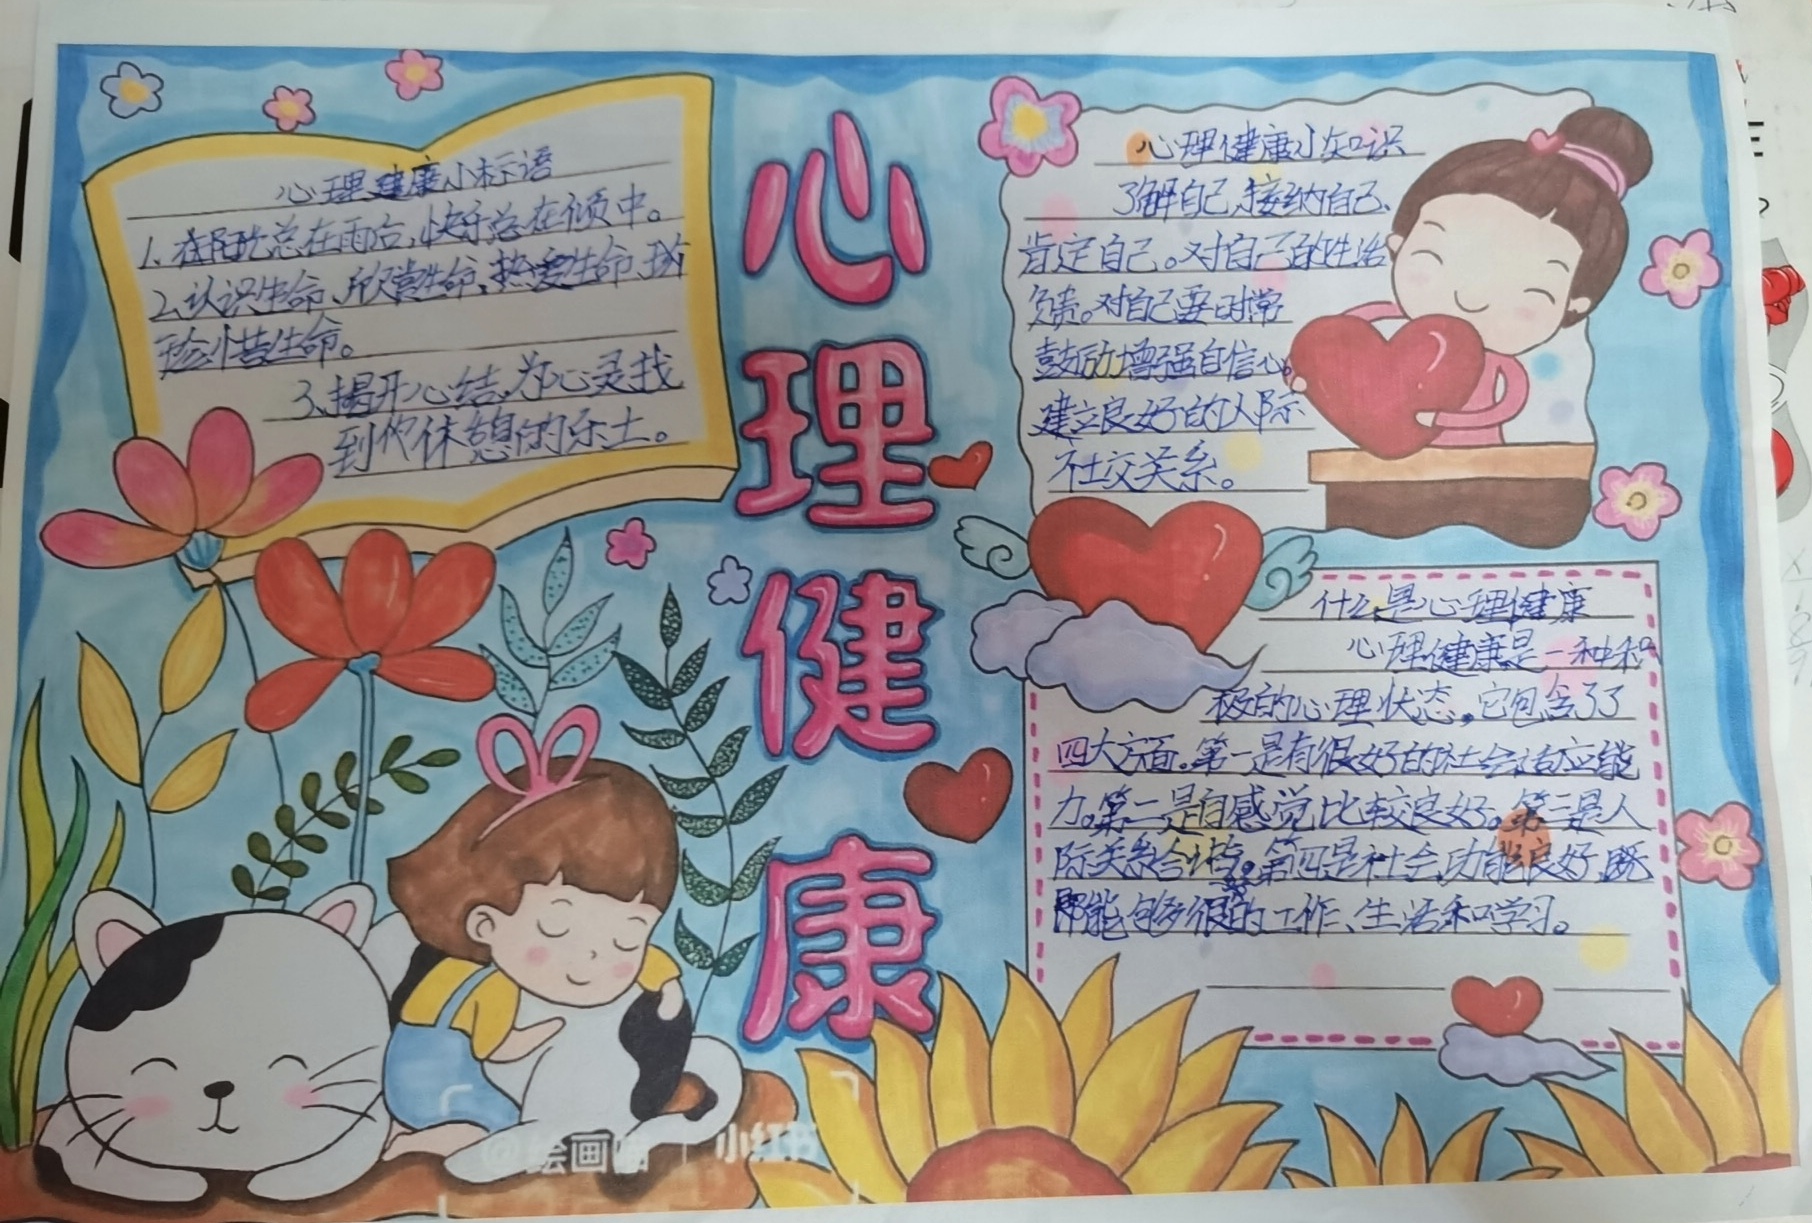 心理健康小标语
1.在阳光总在雨后,快乐总在倾中。
2.认识生命、欣赏生命,热爱生命、珍
珍惜生命。
3.揭开心结,为心灵找
到休憩的乐土。
心理健康
心理健康小知识
了解自己、接纳自己、
肯定自己。对自己的生活
负责。对自己要时常
鼓励增强自信心。
建立良好的人际
社交关系。
什么是心理健康
心理健康是一种积
极的心理状态,它包含了了
四大方面。第一是有很好的社会适应能
力。第二是自感觉比较良好。第三是人
际关系合谐。第四是社会功能良好,既
即能够很的工作、生活和学习。
@绘画喵 | 小红书